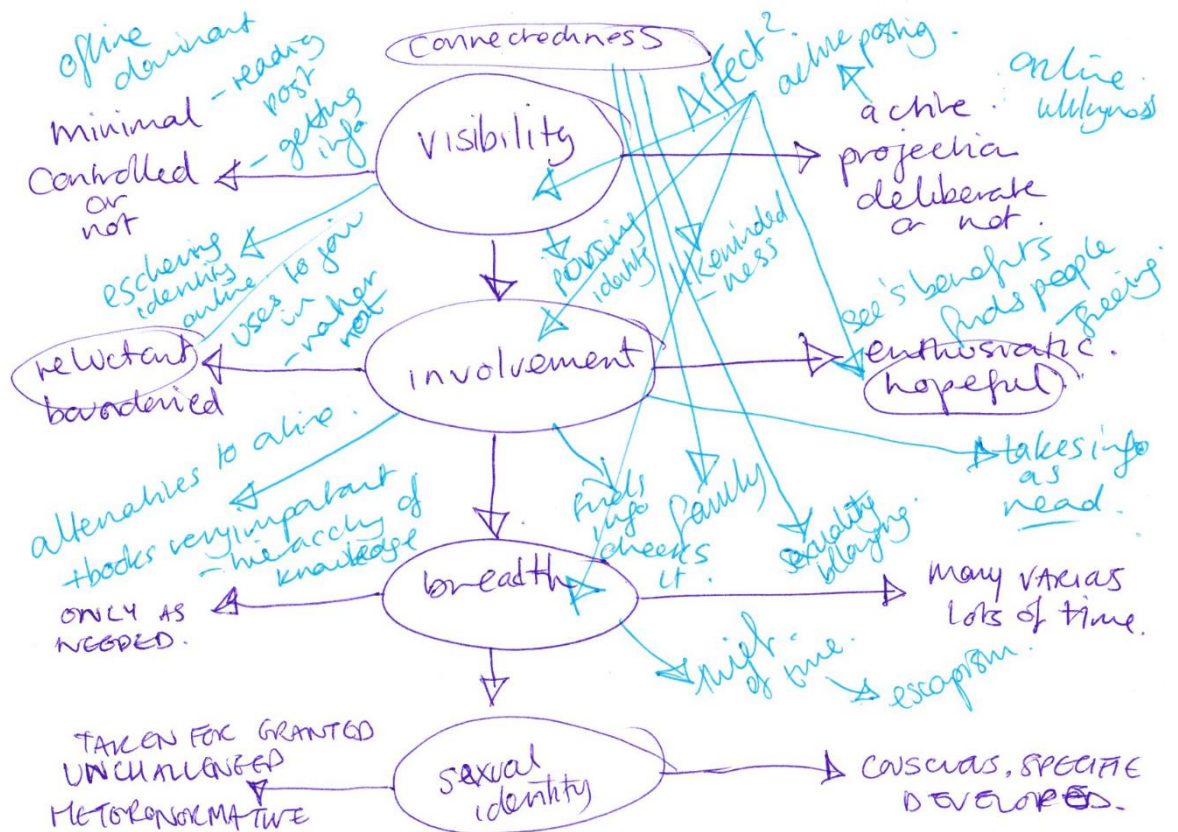 offline
dominant
- reading
post
- getting
info
minimal
controlled
or
not
connectedness
visibility
Affect?
active posting.
online
active.
projection
deliberate
or not.
eschewing
identity
online
uses to join
in
- rather
not
pursuing
identity
likeminded
- ness
see's benefits
finds people
- freeing
reluctant
involvement
enthusiastic.
hopeful
alternatives to online.
+ books very important
- hierarchy of
knowledge
finds
info
checks
it.
family
sexuality
belonging.
takes info
as
read.
breadth
ONLY AS
NEEDED.
many VARIOUS
lots of time.
of time.
escapism.
TAKEN FOR GRANTED
UNCHALLENGED
HETERONORMATIVE
sexual
identity
CONSCIOUS, SPECIFIC
DEVELOPED.